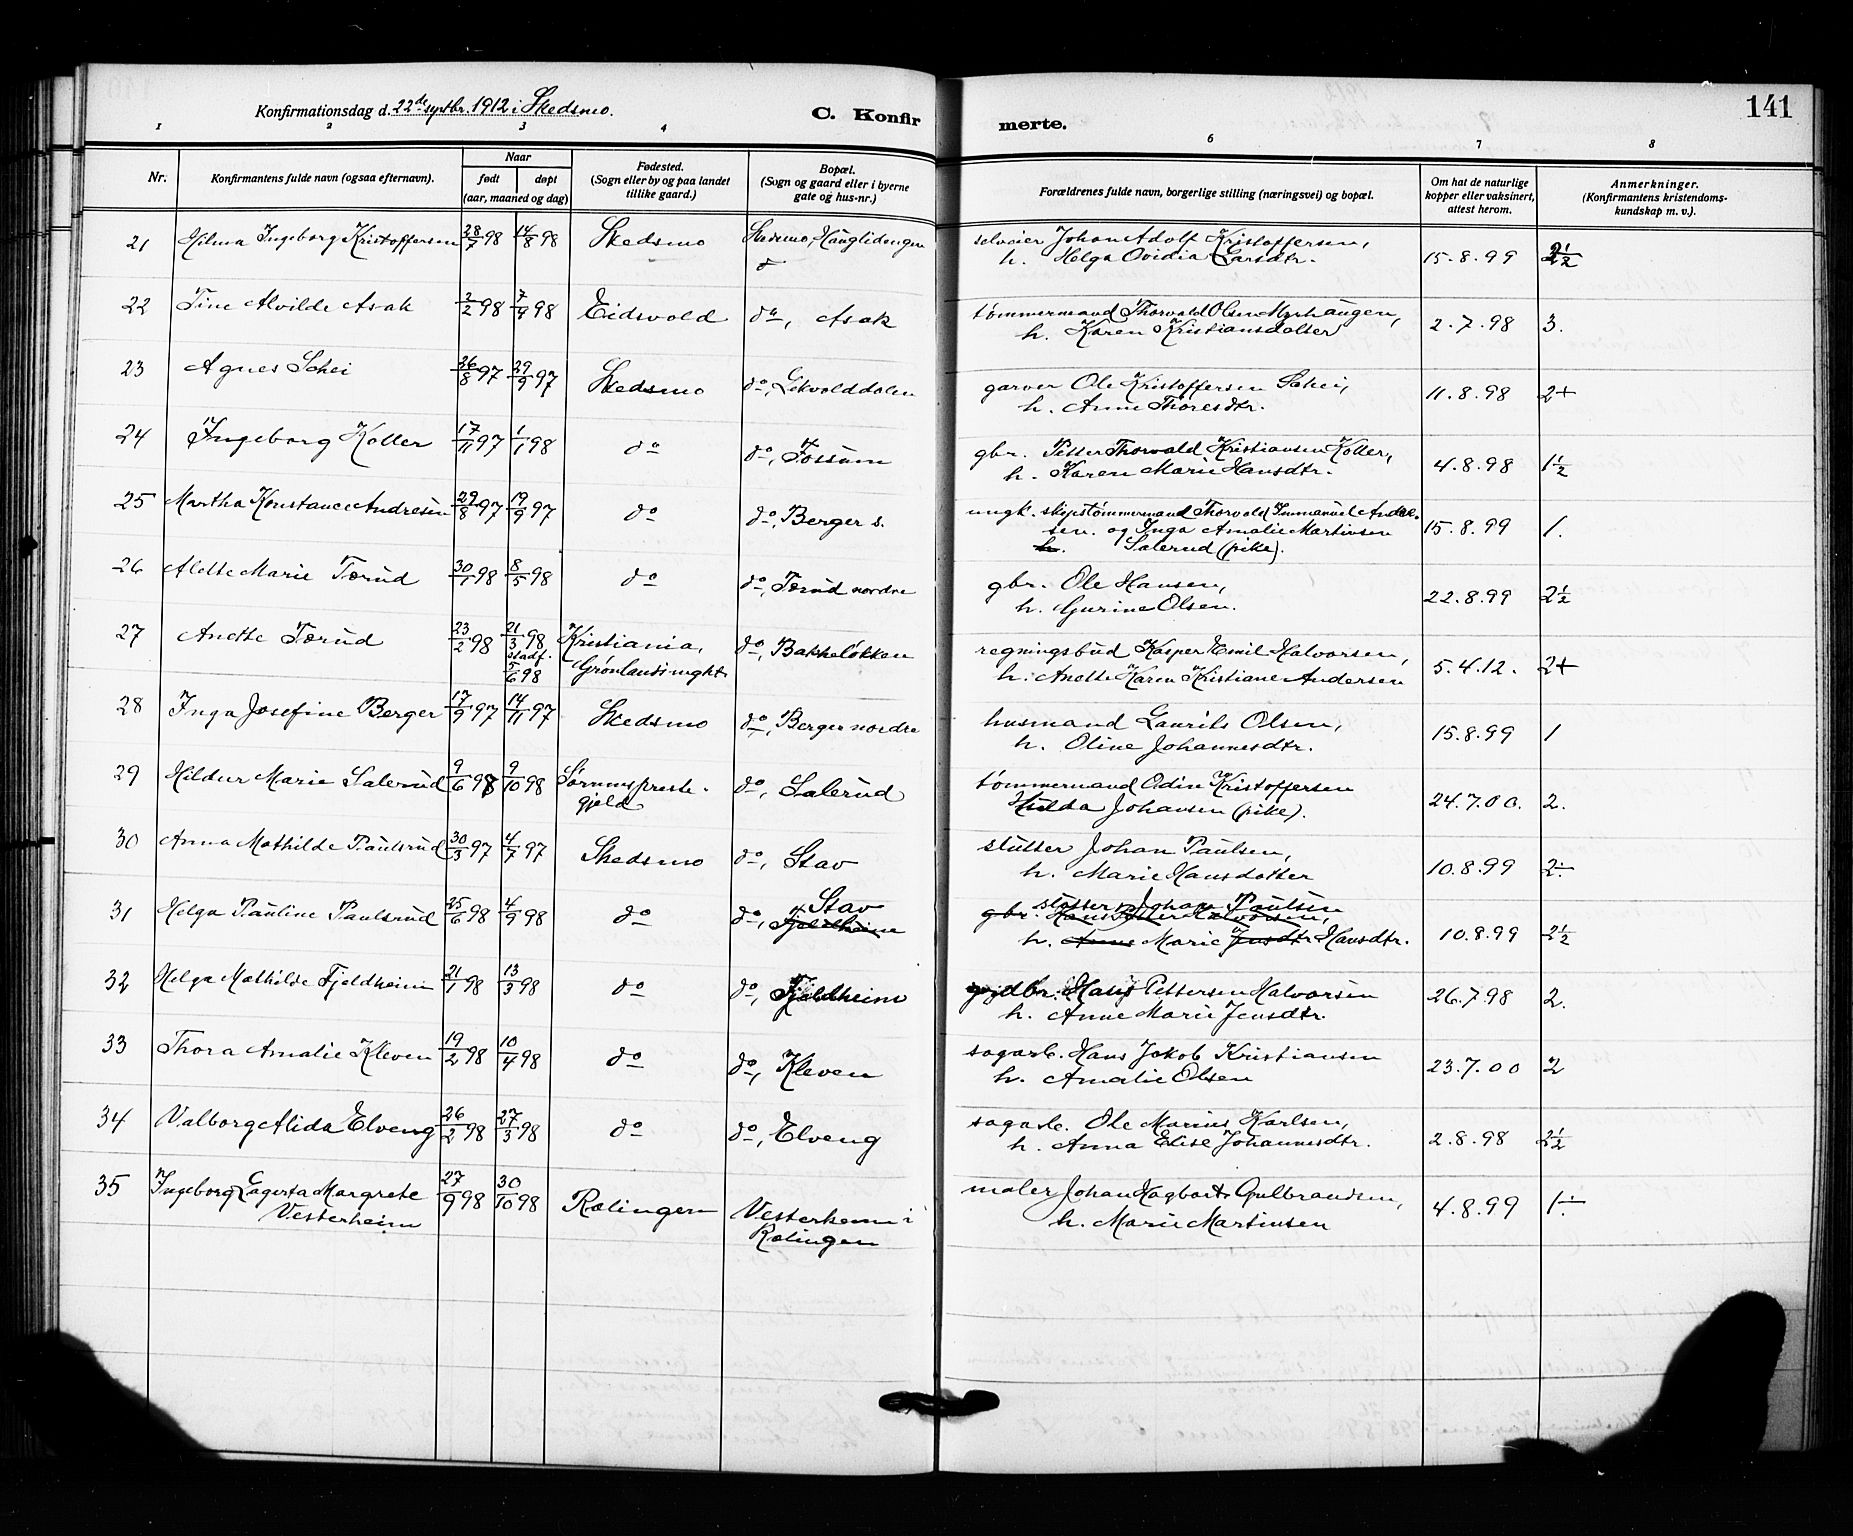 141
Konfirmationsdag d. 22de septbr. 1912 i Skedsmo.
C. Konfirmerte.
1 2 3 4 5 6 7 8
Nr.
Konfirmantens fulde navn (ogsaa efternavn).
Naar
født
døpt
(aar, maaned og dag)
Fødested.
(Sogn eller by og paa landet
tillike gaard.)
Bopæl.
(Sogn og gaard eller i byerne
gate og hus-nr.)
Forældrenes fulde navn, borgerlige stilling (næringsvei) og bopæl.
Om hat de naturlige
kopper eller vaksinert,
attest herom.
Anmerkninger.
(Konfirmantens kristendoms-
kundskap m. v.).
21 Hilma Ingeborg Kristoffersen 28/7 98 14/8 98 Skedsmo Skedsmo, Hauglidengen
selveier Johan Adolf Kristoffersen,
h. Helga Ovidia Larsdtr. 15.8.99 2½
22 Tine Alvilde Asak 2/2 98 7/4 98 Eidsvold do, Asak
tømmermand Thorvald Olsen Myrhaugen,
h. Karen Kristiansdatter 2.7.98 3.
23 Agnes Schei 26/8 97 29/9 97 Skedsmo do, Lekvolddalen
garver Ole Kristoffersen Schei,
h. Anne Thoresdtr. 11.8.98 2+
24 Ingeborg Koller 17/11 97 1/1 98 do do, Fossum
gbr. Petter Thorvald Kristiansen Koller,
h. Karen Marie Hansdtr. 4.8.98 1½
25 Martha Konstance Andresen 29/8 97 19/9 97 do do, Berger s.
ungk. skipstømmermand Thorvald Immanuel Andre-
sen. og Inga Amalie Martinsen 15.8.99 1.
h. Salerud (pike).
26 Alette Marie Tærud 30/1 98 8/5 98 do do, Tærud nordre
gbr. Ole Hansen,
h. Gurine Olsen. 22.8.99 2½
27 Anette Tærud 23/2 98 21/3 98 stadf. 5/6 98 Kristiania, do, Bakkeløkken
Grønlands
regningsbud Kasper Emil Halvorsen,
h. Anette Karen Kristiane Andersen 5.4.12. 2+
28 Inga Josefine Berger 17/9 97 14/11 97 Skedsmo do, Berger nordre
husmand Laurits Olsen,
h. Oline Johannesdtr. 15.8.99 1
29 Hildur Marie Salerud 9/6 98 9/10 98 Sørums preste- do, Salerud
gjeld
tømmermand Odin Kristoffersen
Hulda Johansen (pike). 24.7.00. 2.
30 Anna Mathilde Paulsrud 30/3 97 4/7 97 Skedsmo do, Stav
slutter Johan Paulsen,
h. Marie Hansdatter 10.8.99 2÷
31 Helga Pauline Paulsrud 25/6 98 4/9 98 do do, Fjeldheim Stav
slutter Johan Paulsen
gbr. Hans Petter Halvorsen,
h. Anne Marie Jensdtr Hansdtr. 10.8.99 2½
32 Helga Mathilde Fjeldheim 21/1 98 13/3 98 do do, Fjeldheim
gbr. Hans Pettersen Halvorsen
h. Anne Marie Jensdtr. 26.7.98 2.
33 Thora Amalie Kleven 19/2 98 10/4 98 do do, Kleven
sagarb. Hans Jakob Kristiansen
h. Amalie Olsen 23.7.00 2
34 Valborg Alida Elveng 26/2 98 27/3 98 do do, Elveng
sagarb. Ole Marius Karlsen,
h. Anna Elise Johannesdtr. 2.8.98 2½
35 Ingeborg Lagerta Margrete 27/9 98 30/10 98 Rælingen Vesterheim i
Vesterheim Rælingen
maler Johan Hagbart Gulbrandsen,
h. Marie Martinsen 4.8.99 1÷